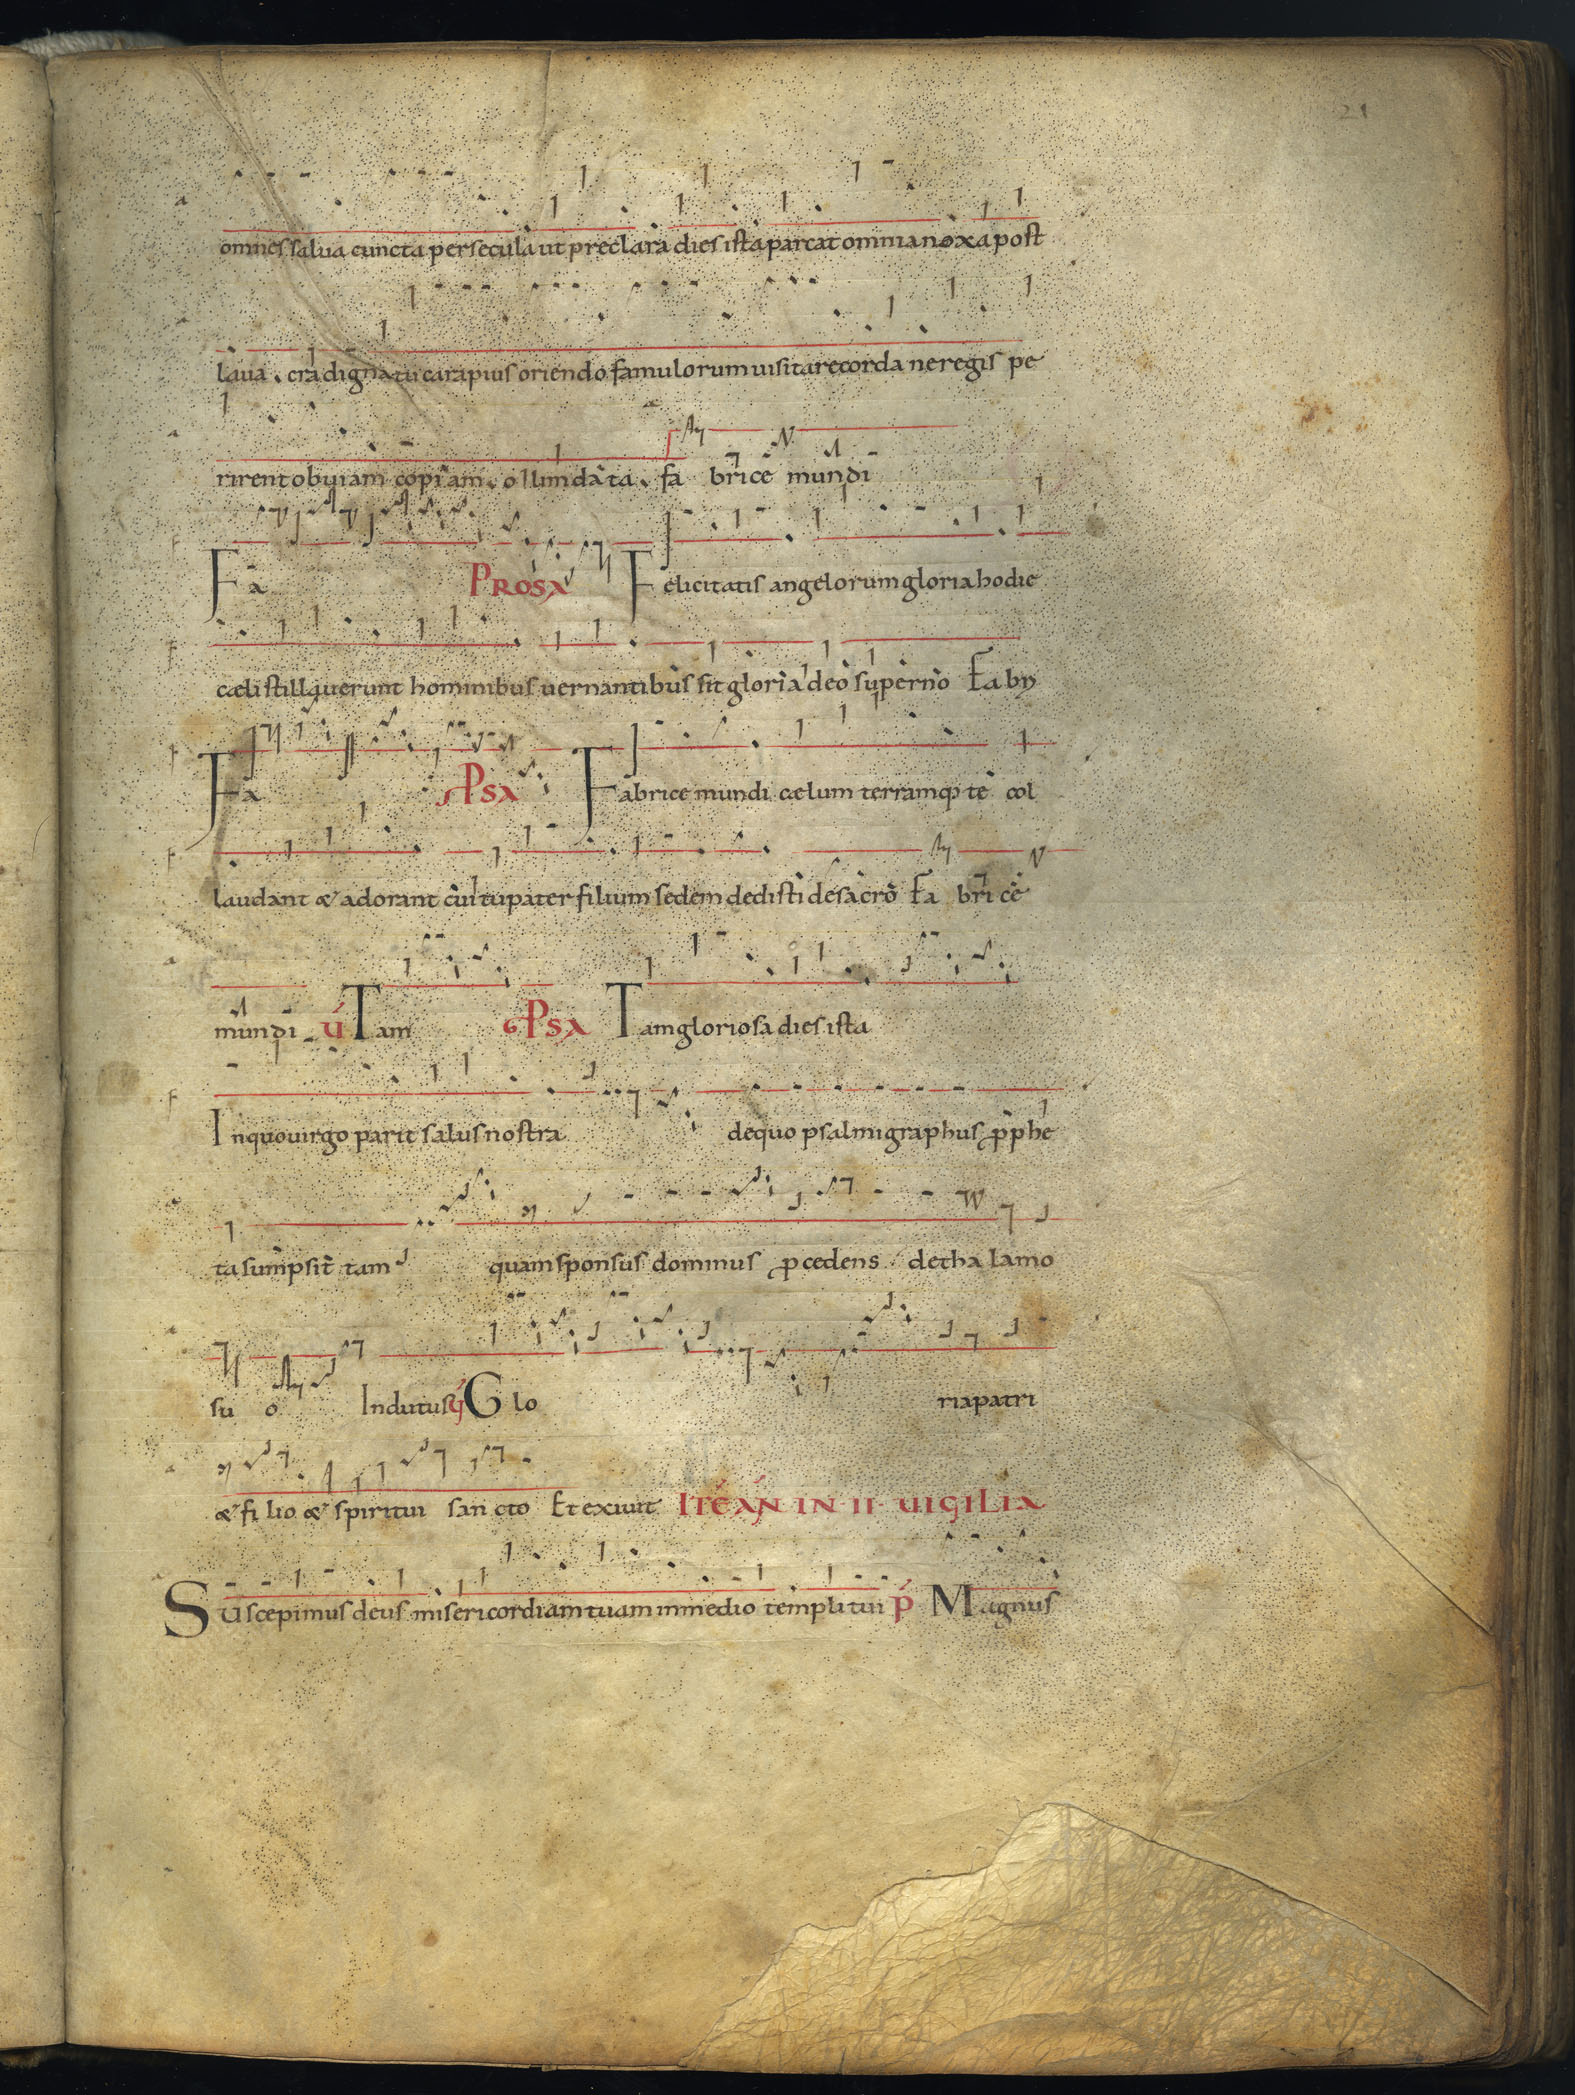 21
omnes salua cuncta per secula ut preclara dies ista parcat omnia noxa post
laua . cra digna tu cara pius oriendo famulorum uisita recorda ne regis pe
rirent obuiam copiam . o lumdata . fa brice mundi
Fa PROSA Felicitatis angelorum gloria hodie
cæli stillauerunt hominibus uernantibus sit gloria deo superno Fa bri
Fa PSA Fabrice mundi cælum terramq te col
laudant & adorant cui tu pater filium sedem dedisti de sacro Fa bri ce
mundi V Tam PSA Tam gloriosa dies ista
In quo uirgo parit salus nostra de quo psalmigraphus pphe
ta sumpsit tam quam sponsus dominus pcedens de tha lamo
su o Indutus V Glo ria patri
& fi lio & spiritui san cto Et exiuit ITE AN IN II UIGILIA
Suscepimus deus misericordiam tuam in medio templi tui p Magnus